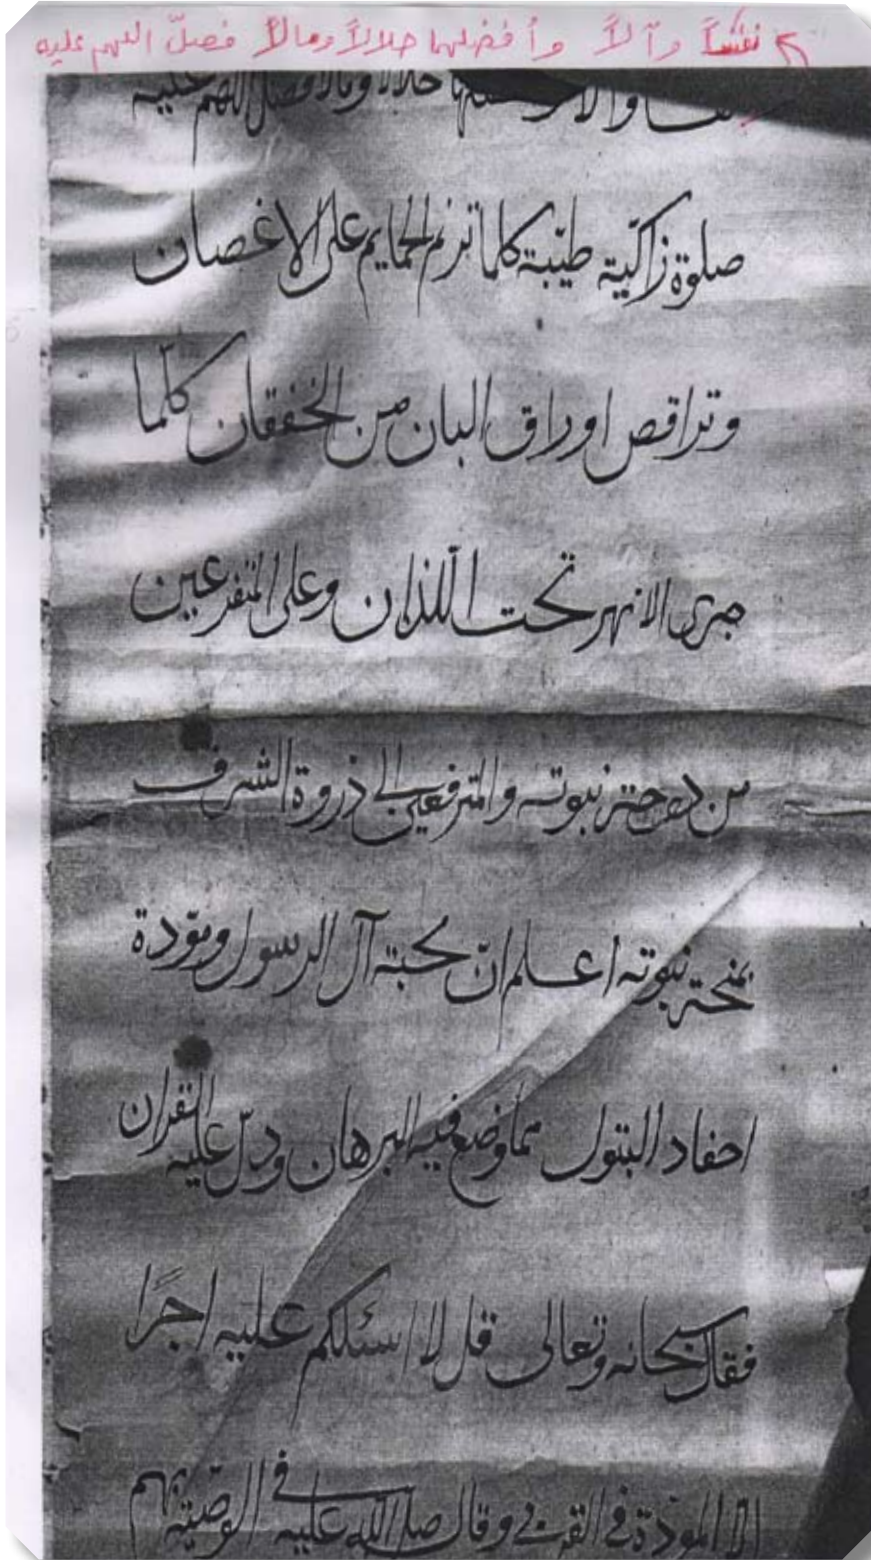 نفساً وآلاً وأفضلها حلالاً ومالاً فصلّ اللهم عليه
وآلا حلالا ومالا فصل اللهم عليه
صلوة زاكية طيبة كلما ترنم الحمايم على الاغصان
وتراقص اوراق البان من الخفقان كلّما
جرى الانهر تحت اللذان وعلى المتفرعين
من دوحة نبوته والمترفعين الى ذروة الشرف
نبوته اعلم انّ محبته آل الرسول وموّدة
احفاد البتول مما وضع فيه البرهان ودلّ عليه القران
فقال سبحانه وتعالى قل لا اسئلكم عليه اجرًا
الا المودّة في القربى وقال صلى الله عليه في الوصيّة بهم